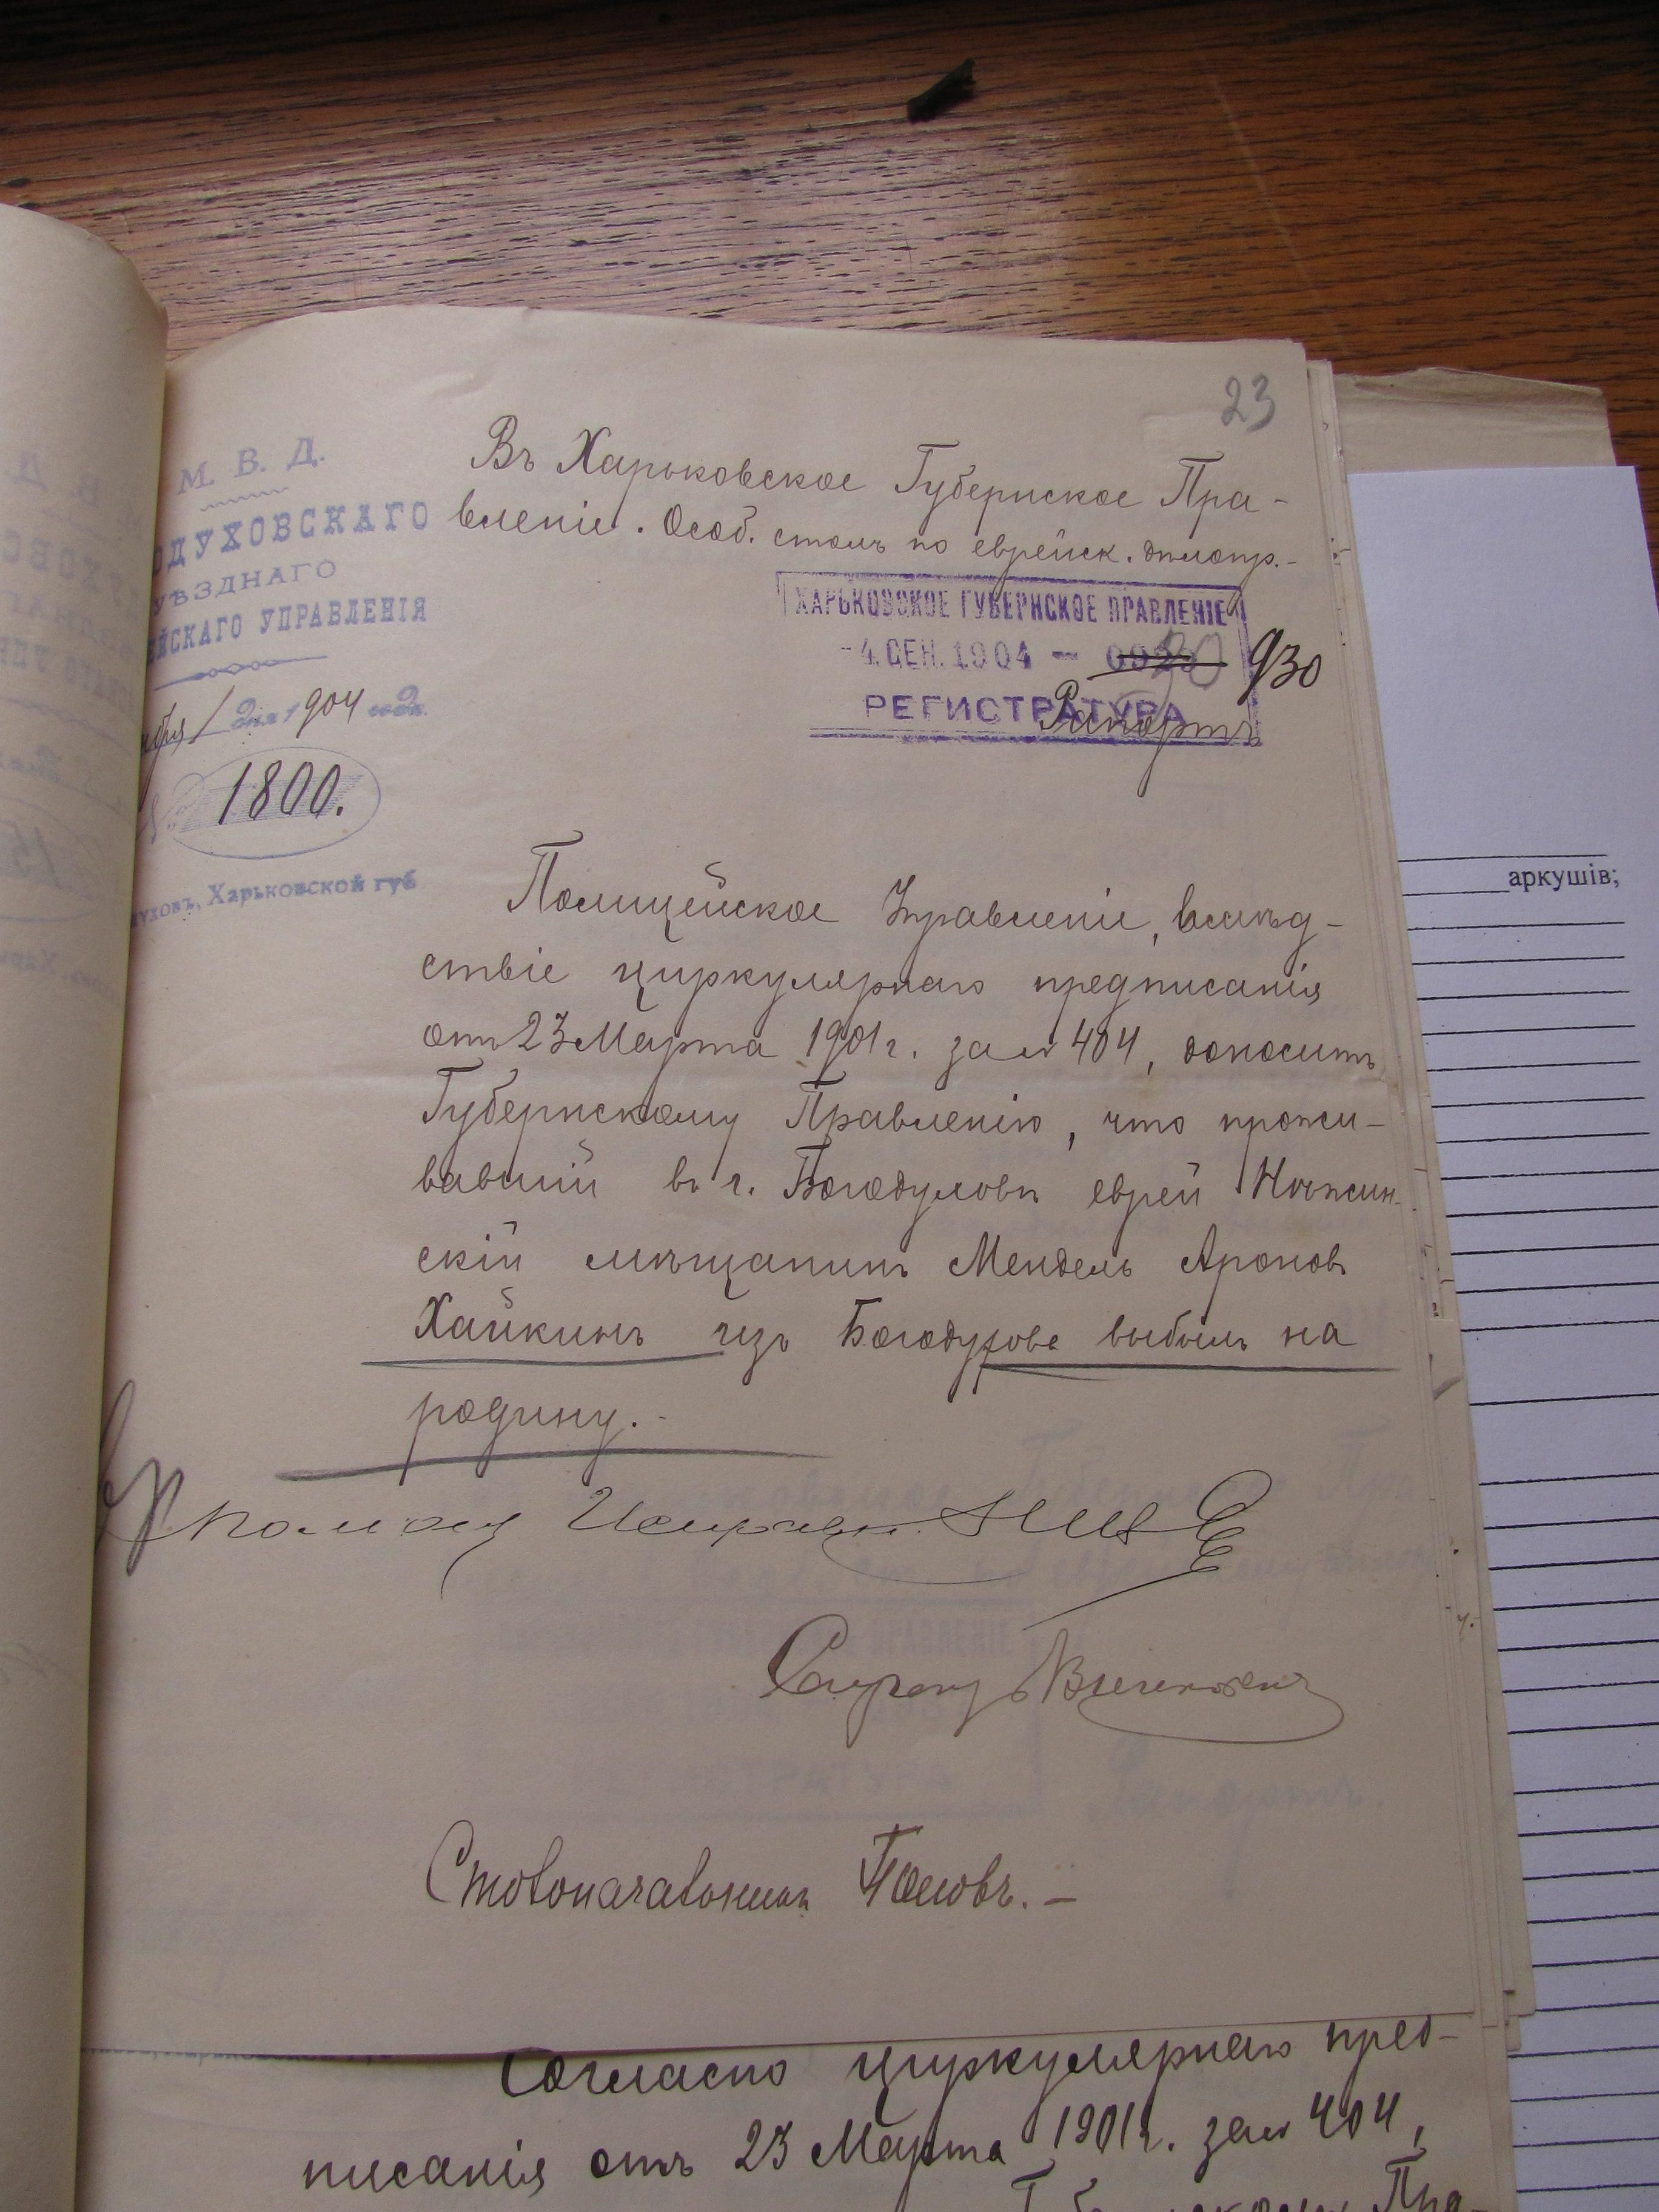 23
М. В. Д.
ОДУХОВСКАГО
УѢЗДНАГО
ЕЙСКАГО УПРАВЛЕНІЯ
ября 1 дня 1904 года.
№ 1800.
духовъ, Харьковской губ
Въ Харьковское Губернское Пра-
вленіе. Особ. столъ по еврейск. дѣлопр.-
ХАРЬКОВСКОЕ ГУБЕРНСКОЕ ПРАВЛЕНІЕ
-4. СЕН. 1904 — 930
РЕГИСТРАТУРА
Рапортъ
Полицейское Управленіе, вслѣд-
ствіе циркулярнаго предписанія
отъ 23 Марта 1901 г. за № 404, доноситъ
Губернскому Правленію, что прожи-
вавшій въ г. Богодуховѣ еврей Нѣжин-
скій мѣщанинъ Мендель Ароновъ
Хайкинъ изъ Богодухова выбылъ на
родину.-
Помощ Исправн.
Секретарь
Столоначальникъ Поповъ.-
аркушів;
Согласно циркулярнаго пред-
писанія отъ 23 Марта 1901 г. за № 404,
Пра-